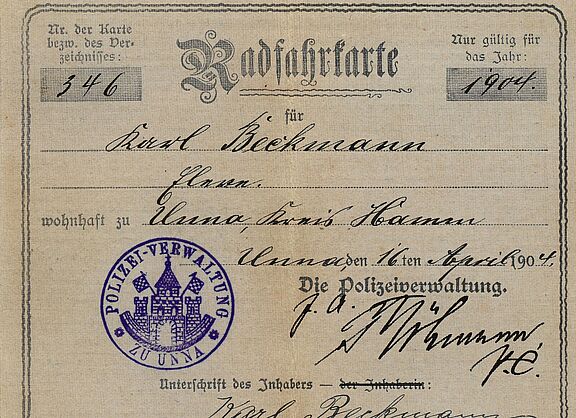 Nr. der Karte
bezw. des Ver-
zeichnisses:
346
Radfahrkarte
Nur gültig für
das Jahr:
1904.
für
Karl Beckmann
Eleve.
wohnhaft zu Unna, Kreis Hamm
Unna, den 16 ten April 1904.
Die Polizeiverwaltung.
J. A.
POLIZEI-VERWALTUNG
ZU UNNA
Unterschrift des Inhabers — der Inhaberin:
Karl Beckmann